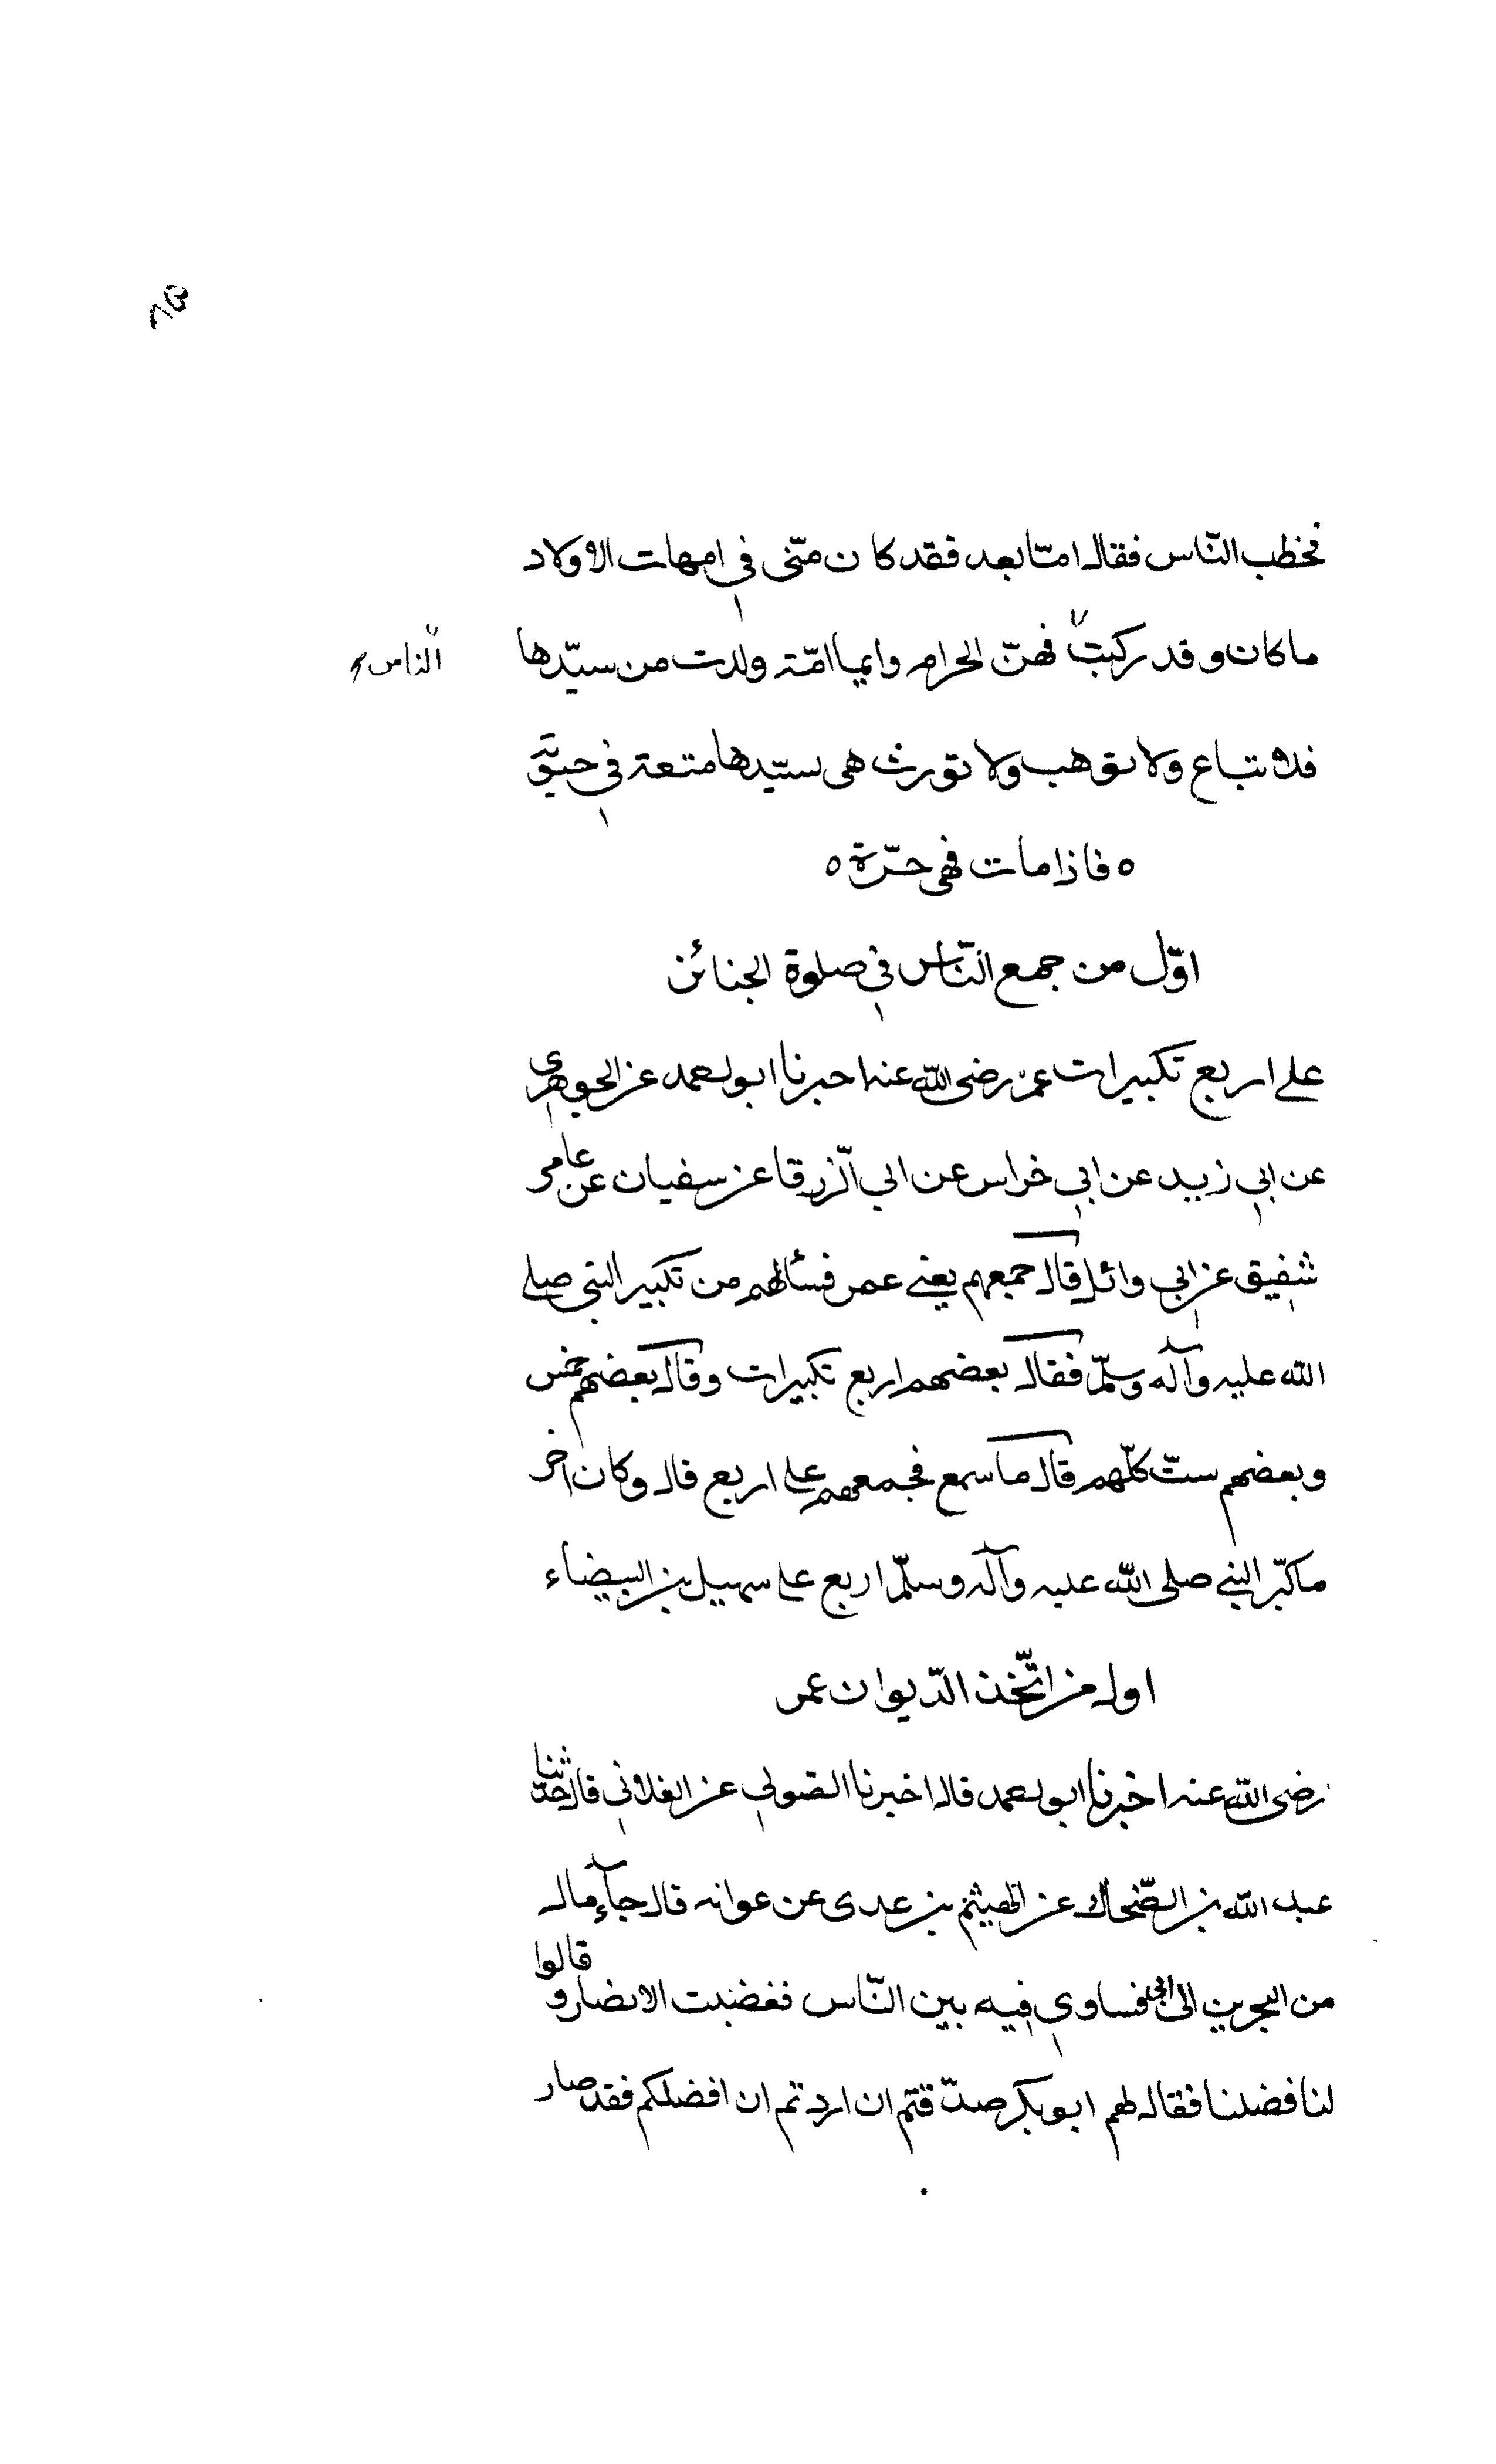 فخطب النّاس فقال امّا بعد فقد كان منّى فى امهات الاولاد
ماكان وقد ركبت فهنّ الحرام وايما امّة ولدت من سيّدها
الناس
فلا تباع ولا توهب ولا تورث هى لسيّدها متعة فى حيوٰته
ه فاذا مات فهى حرّة ه
اوّل من جمع النّاس فى صلوة الجنائز
على اربع تكبيرات عمر رضى اللّه عنه اخبرنا ابو احمد عن الجوهرى
عن ابى زيد عن ابى خراس عن ابى الزرقا عن سفيان عن عامر
شقيق عن ابى وائل قال جمعهم يعنى عمر فسألهم من تكبير النبى صلى
اللّه عليه وآله وسلّم فقال بعضهم اربع تكبيرات وقال بعضهم خمس
وبعضهم ستّ كلّهم قال ما سمع فجمعهم على اربع قال وكان اخر
ما كبّر النبى صلى اللّه عليه وآله وسلّم اربع على سهيل بن البيضاء
اول من اتّخذ الدّيوان عمر
رضى اللّه عنه اخبرنا ابو احمد قال اخبرنا الصولى عن الغلابى قال حدثنا
عبد اللّه بن الضّحاك عن الهيثم بن عدى عن عوانه قال جآء مال
من البحرين الى ابى فساوى فيه بين النّاس فغضبت الانصار وقالوا
لنا فضلنا فقال لهم ابو بكر صدّقتم ان اردتم ان افضلكم فقد صار